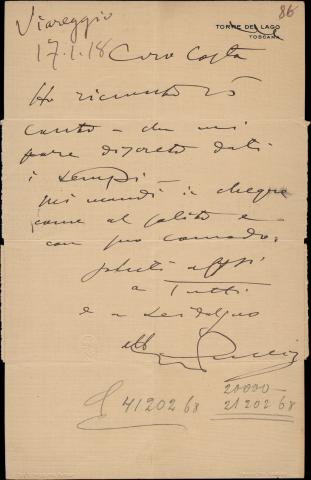 Viareggio
86
TORRE DEL LAGO
TOSCANA
17.1.18 Caro Costa
Ho ricevuto
conto – che mi
pare discreto dati
i tempi –
Mi mandi il cheque
come al solito e
con suo comodo.
saluti affi
a Tutti
e a lei
Puccini
41202 68
20000 –
21202 68